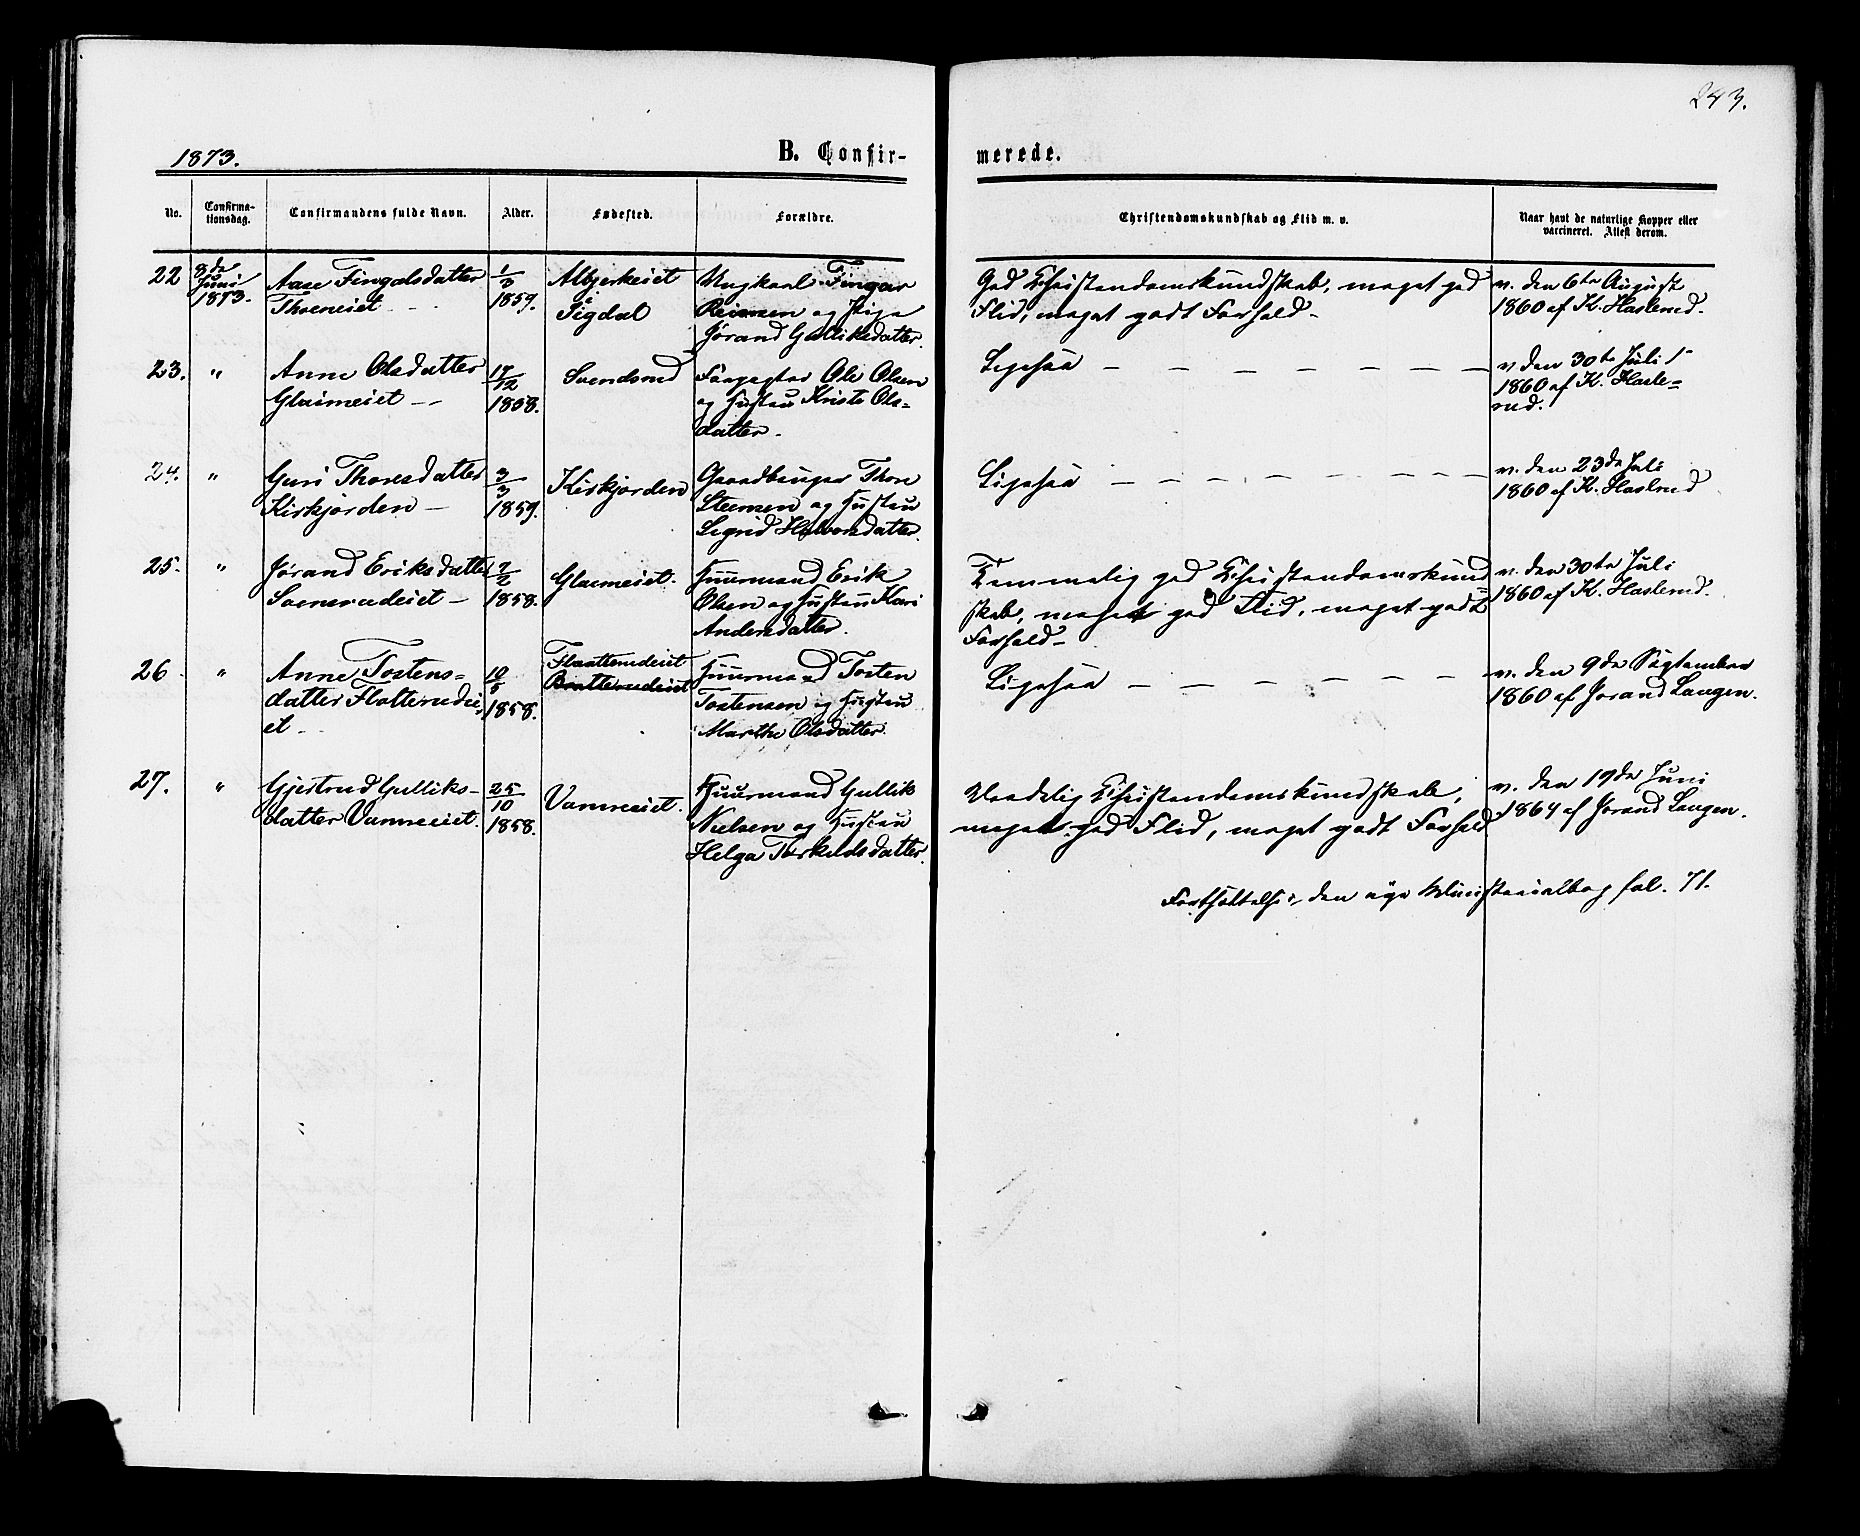 243.
1873.
B. Confir-
merede.
No.
Confirma-
tionsdag.
Confirmandens fulde Navn.
Alder.
Fødested.
Forældre.
Christendomskundskab og Flid m. v.
Naar havt de naturlige Kopper eller
vaccineret. Attest derom.
22
8de
Juni
1873.
Aase Fingalsdatter
Thoeneiet
1/3
1859.
Albjerkeiet
Sigdal
Ungkarl Fingar
Reiersen og Pige
Jørand Gulliksdatter.
God Christendomskundskab, meget god
Flid, meget godt Forhold -
v. den 6te August
1860 af K. Haslerud.
23.
"
Anne Olsdatter
Glaimeiet -
17/12
1858.
Svendsrud
Forpagter Ole Olsen
og Hustru Kristi Ols-
datter -
Ligesaa
v. den 30te Juli
1860 af K. Hasle-
rud.
24.
"
Guri Thoresdatter
Kirkjorden -
3/3
1859.
Kirkjorden
Gaardbruger Thore
Steensen og Hustru
Sigrid Halvorsdatter.
Ligesaa
v. den 23de Juli
1860 af K. Haslerud
25.
"
Jørand Eriksdatter
Svenerudeiet -
7/2
1858.
Glaimeiet.
Huusmand Erik
Olsen og Hustru Kari
Andersdatter.
Temmelig god Christendomskund-
skab, meget god Flid, meget godt
Forhold -
v. den 30te Juli
1860 af K. Haslerud.
26
"
Anne Tostens-
datter Flatterudei-
et -
10/5
1858.
Flaatterudeiet
Bratterudeiet
Huusmand Tosten
Tostensen og Hustru
Marthe Olsdatter.
Ligesaa
v. den 9de September
1860 af Jorand Laugen.
27.
"
Gjertrud Gulliks-
datter Vamneiet.
25/10
1858.
Vamneiet.
Huusmand Gullik
Nielsen og Hustru
Helga Torkildsdatter.
Maadelig Christendomskundskab,
meget god Flid, meget godt Forhold
v. den 19de Juni
1864 af Jorand Laugen.
Fortsættelse, den nye Ministerialbog fol. 71.